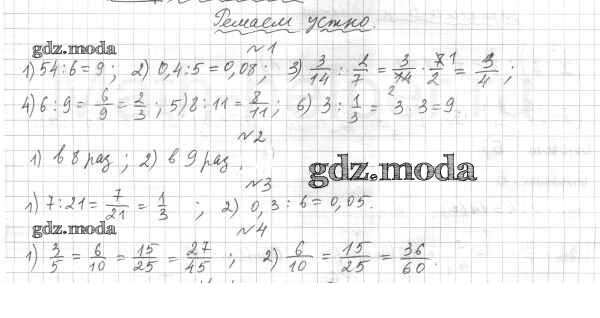 Решаем устно.
gdz.moda
№1
1) 54:6=9; 2) 0,4:5=0,08; 3) 3/14 : 2/7 = 3/14 · 7/2 = 3/4;
4) 6:9 = 6/9 = 2/3; 5) 8:11 = 8/11; 6) 3 : 1/3 = 3·3=9.
№2
1) в 8 раз; 2) в 9 раз.
gdz.moda
№3
1) 7:21 = 7/21 = 1/3; 2) 0,3:6=0,05.
gdz.moda
№4
1) 3/5 = 6/10 = 15/25 = 27/45; 2) 6/10 = 15/25 = 36/60.